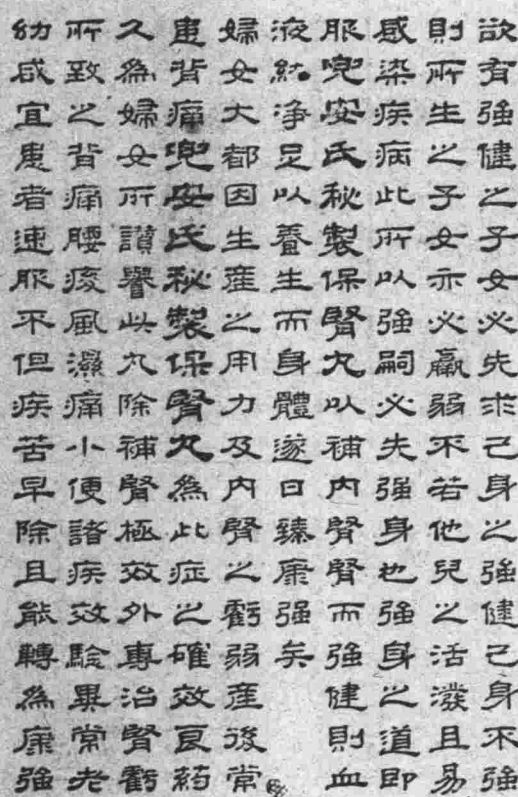 欲有強健之子女必先求己身之強健己身不強
則所生之子女亦必羸弱不若他兒之活潑且易
感染疾病此所以強嗣必先強身也強身之道即
服兜安氏秘製保腎丸以補內腎腎而強健則血
液純净足以養生而身體遂日臻康強矣
婦女大都因生產之用力及內腎之虧弱產後常
患背痛兜安氏秘製保腎丸為此症之確效良葯
久為婦女所讚譽此丸除補腎極效外專治腎虧
所致之背痛腰痠風濕痛小便諸疾效驗異常老
幼咸宜患者速服不但疾苦早除且能轉為康強